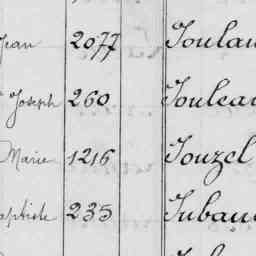 Jean 2077 Toulau
Joseph 260 Touleau
Marie 1216 Touzel
aptiste 235 Tubau